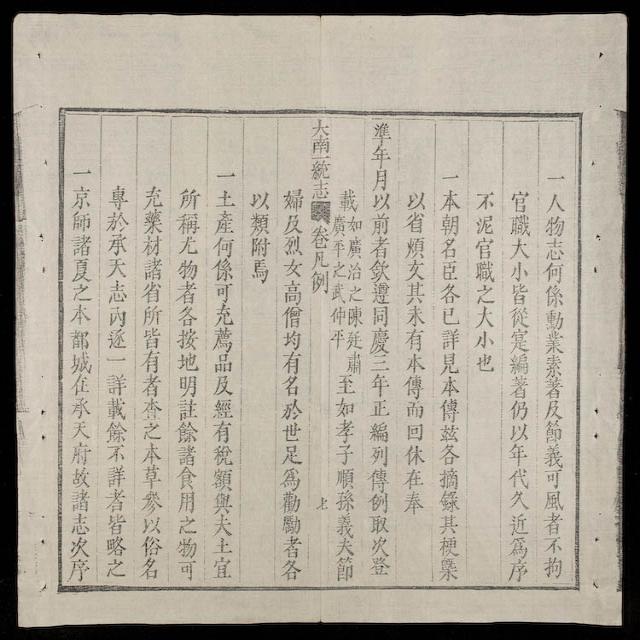 一人物志何係勳業素著及節義可風者不拘
官職大小皆從寔編著仍以年代久近為序
不泥官職之大小也
一本朝名臣各已詳見本傳茲各摘錄其梗槩
以省煩文其未有本傳而回休在奉
準年月以前者欽遵同慶三年正編列傳例取次登
載如廣治之陳廷肅廣平之武仲平至如孝子順孫義夫節
大南一統志 卷凡例
婦及烈女高僧均有名於世足為勸勵者各
以類附焉
一土產何係可充薦品及經有稅額與夫土宜
所稱尤物者各按地明註餘諸食用之物可
充藥材諸省所皆有者查之本草參以俗名
專於承天志內逐一詳載餘不詳者皆略之
一京師諸夏之本都城在承天府故諸志次序